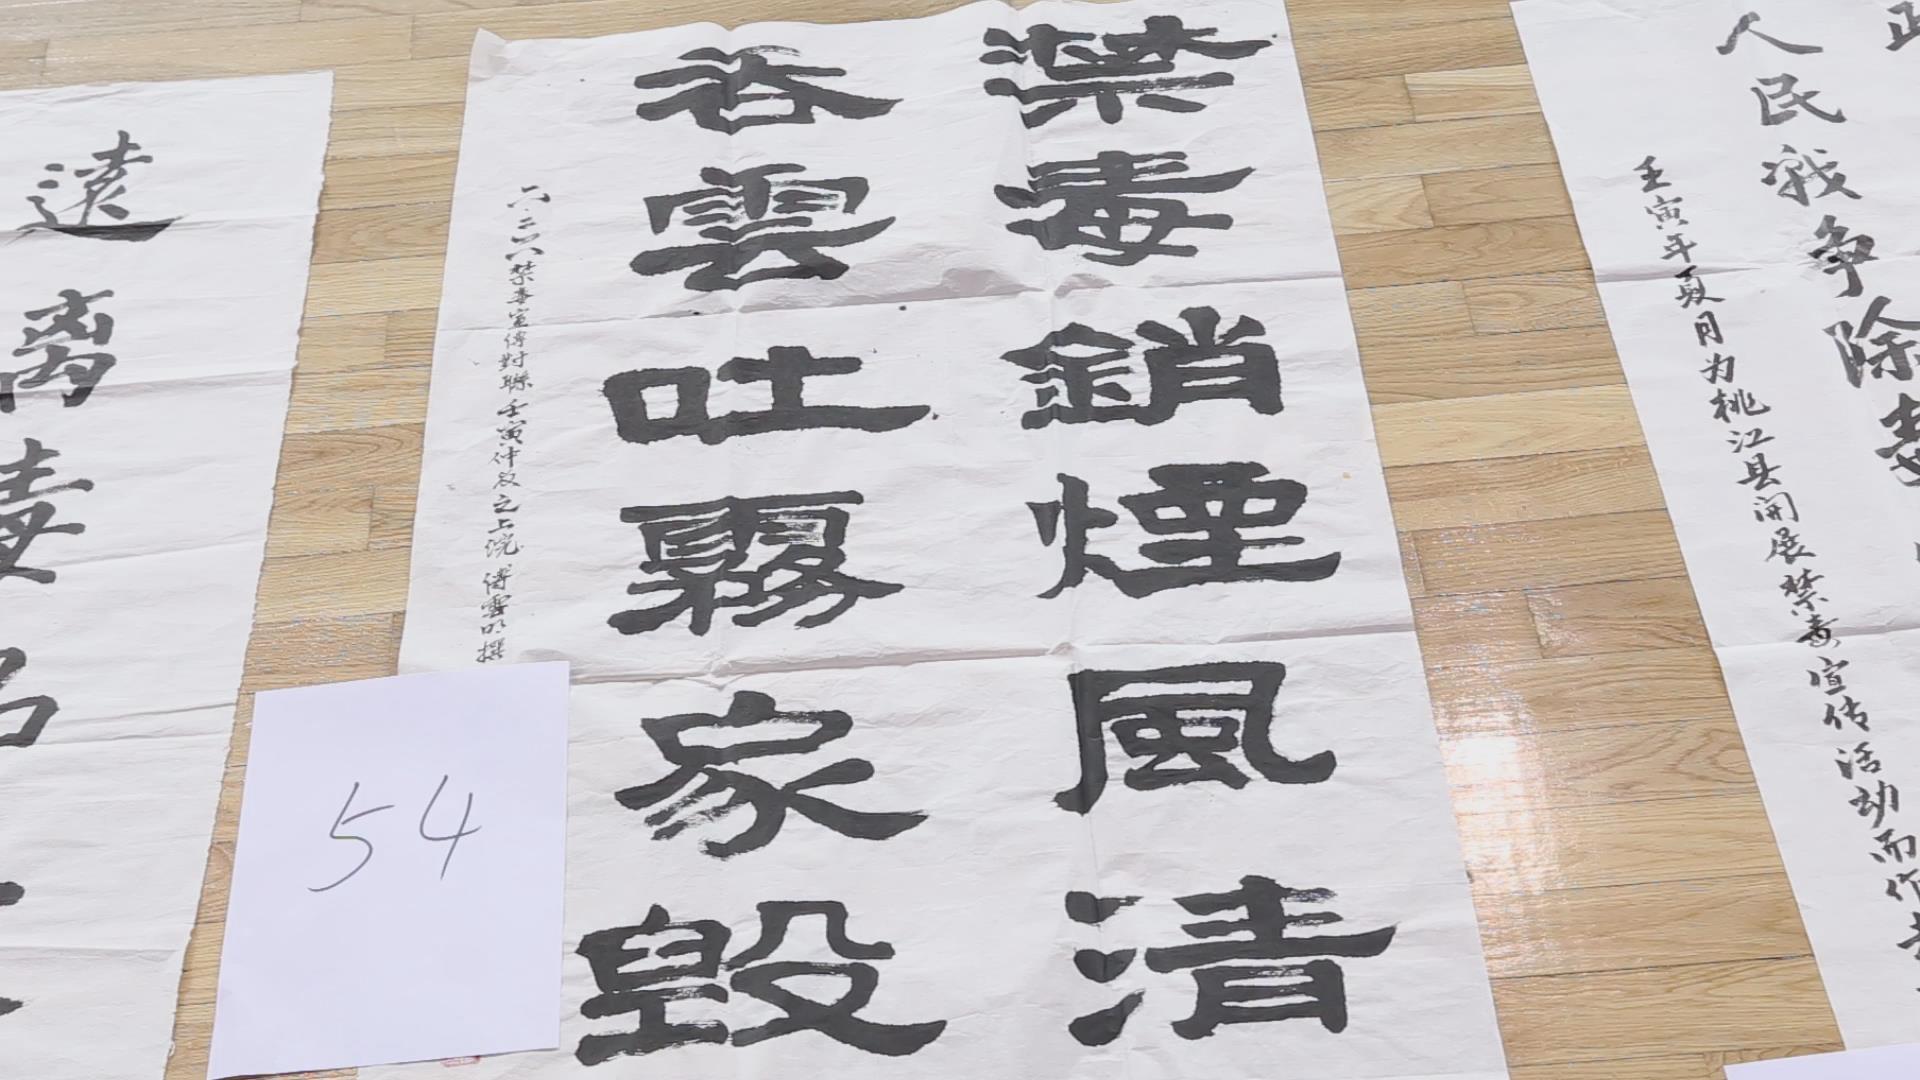 人民戰争除毒
壬寅年夏月为桃江县开展禁毒宣传活动而作
禁毒銷煙風清
吞雲吐霧家毀
六·二六禁毒宣傳對聯 壬寅仲夏之上浣 傅雲明撰
54
遠离毒